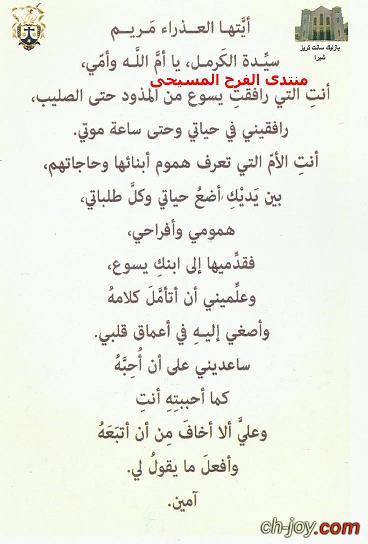 أيَّتها العـذراء مَـريـم
بازليك سانت تريز
شبرا
سيِّـدة الكَرمـل، يا أمَّ اللَّـه وأمّي،
منتدى الفرح المسيحى
أنتِ التي رافقتِ يسوع من المذود حتى الصليب،
رافقيني في حياتي وحتى ساعة موتي.
أنتِ الأمّ التي تعرف هموم أبنائها وحاجاتهم،
بين يَديْكِ أضعُ حياتي وكلَّ طلباتي،
همومي وأفراحي،
فقدِّميها إلى ابنكِ يسوع،
وعلِّميني أن أتأمَّلَ كلامهُ
وأصغي إليـهِ في أعماق قلبي.
ساعديني على أن أُحِبَّهُ
كما أحببتِهِ أنتِ
وعليَّ ألا أخافَ مِن أن أتبَعَهُ
وأفعلَ ما يقولُ لي.
آمين.
ch-joy.com